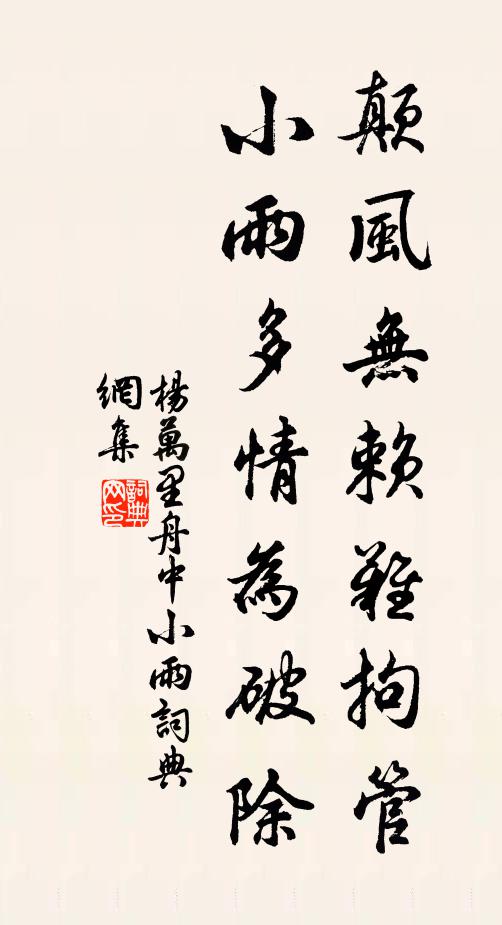 顛風無賴難拘管
小雨多情為破除
楊萬里舟中小雨詞典
網集
詞典
网印